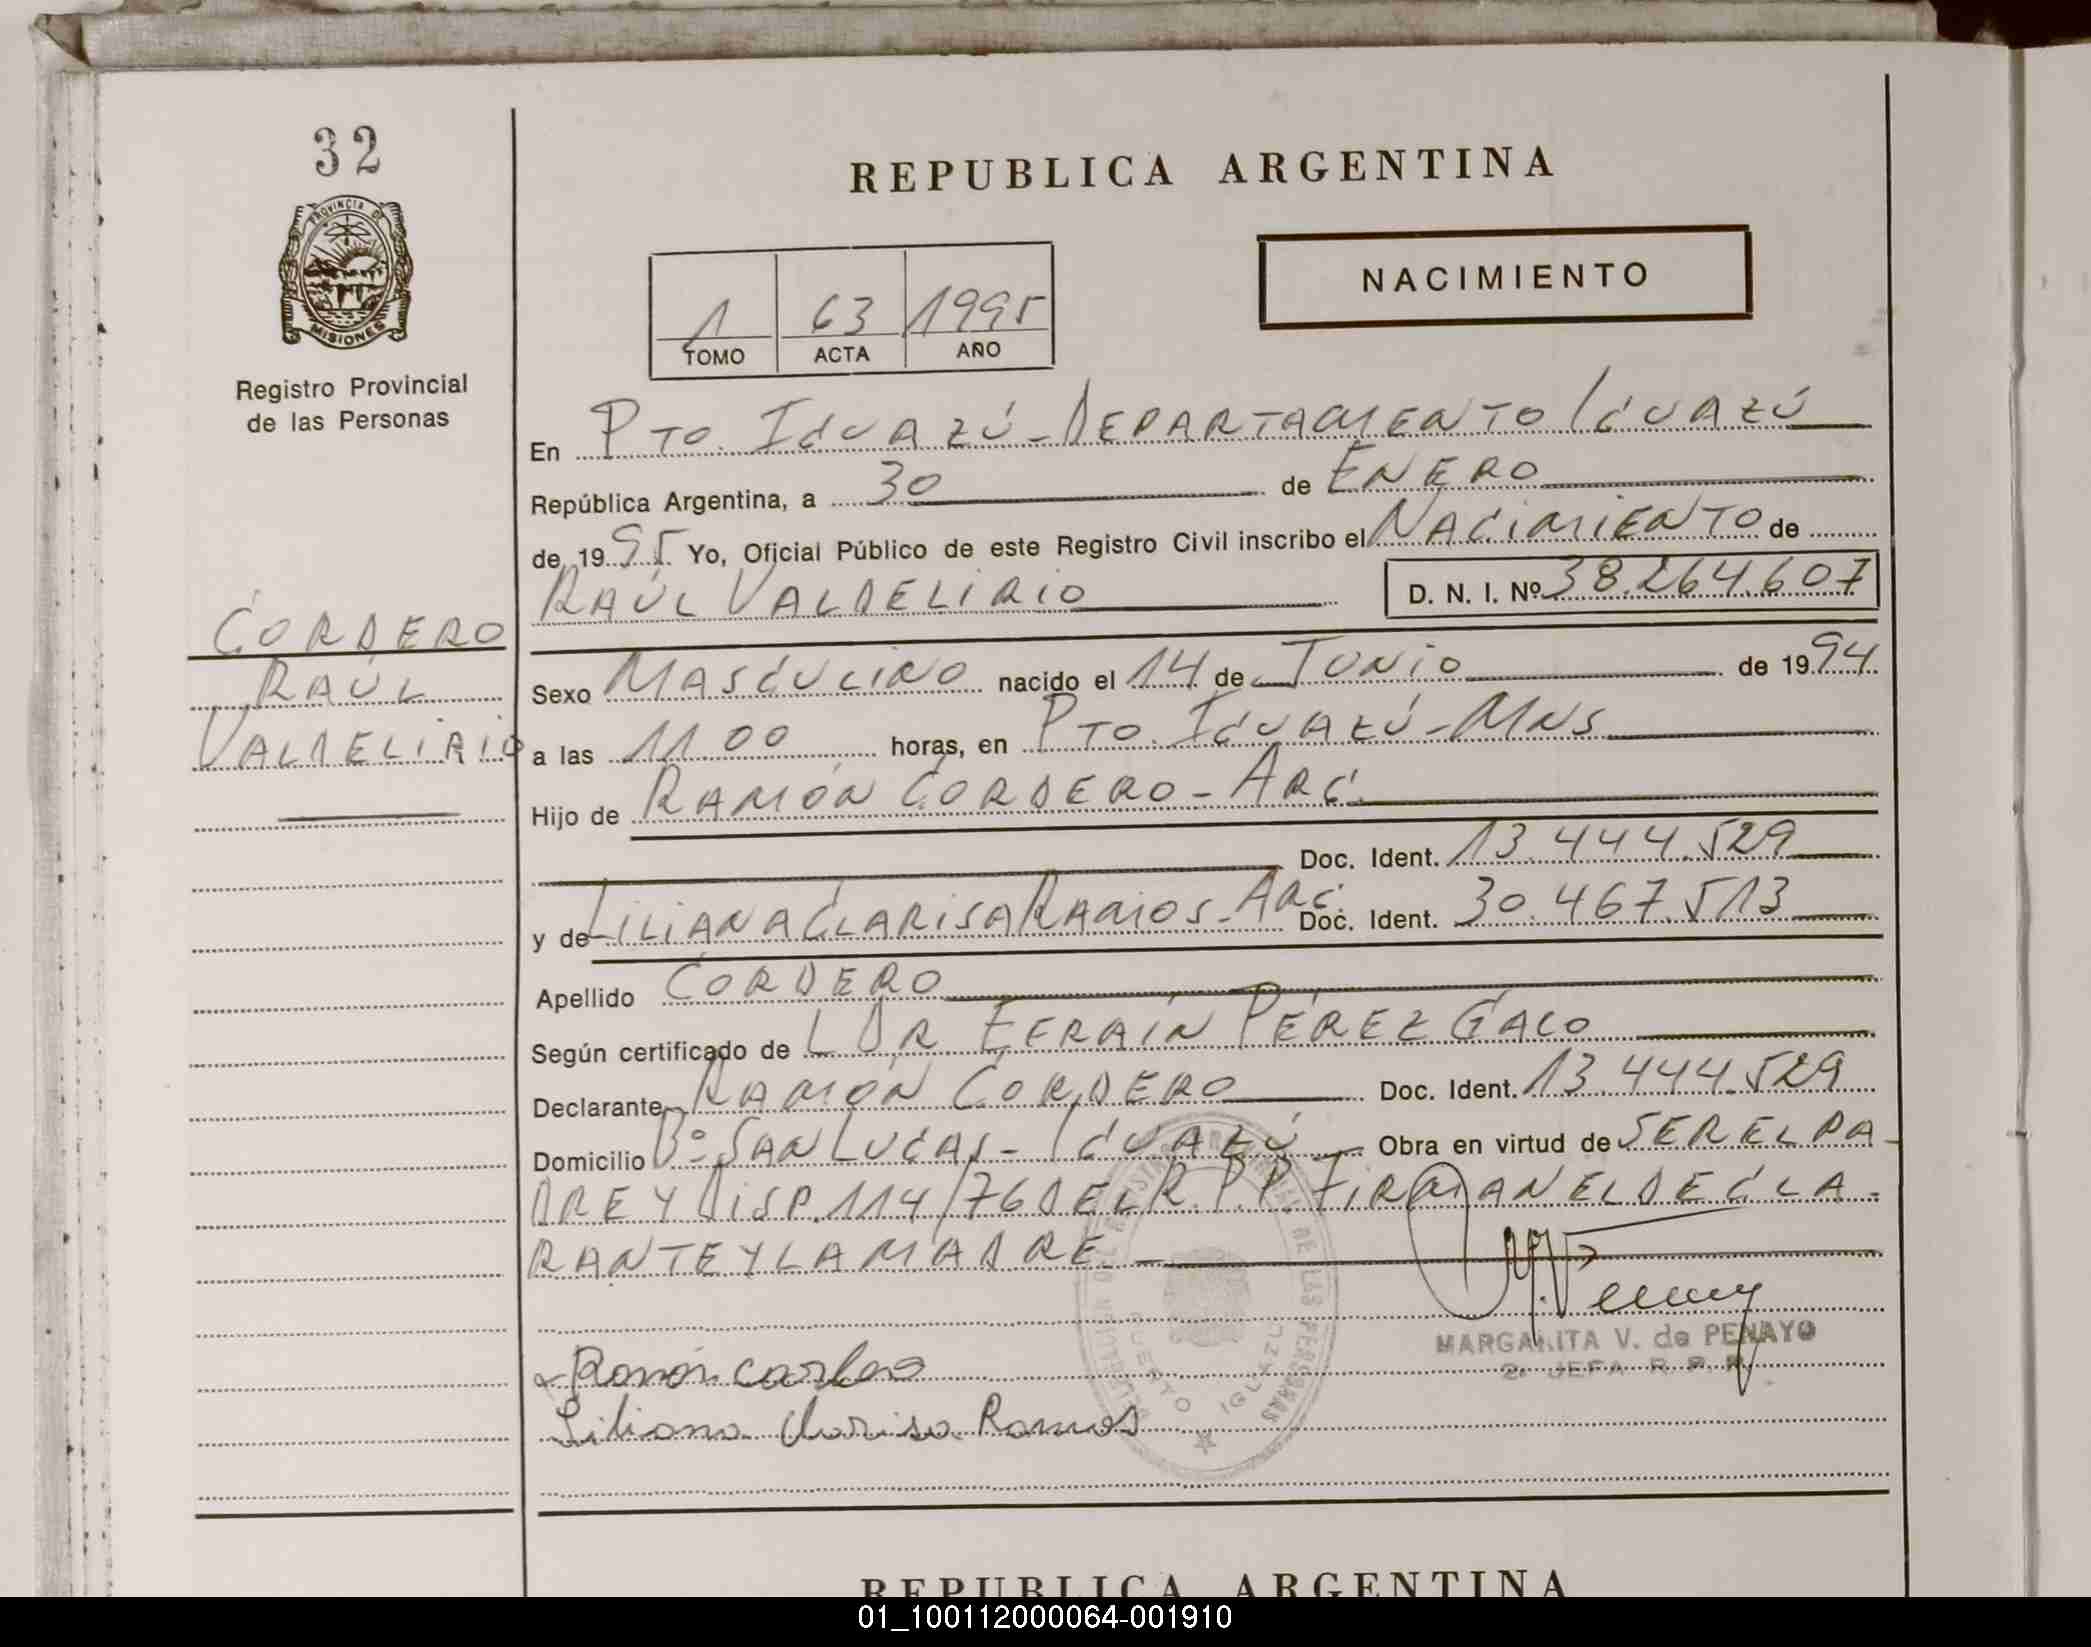 32
REPUBLICA ARGENTINA
PROVINCIA DE
MISIONES
Registro Provincial
de las Personas
1 63 1995
TOMO ACTA AÑO
NACIMIENTO
En PTO. IGUAZÚ - DEPARTAMENTO IGUAZÚ
República Argentina, a 30 de ENERO
de 1995 Yo, Oficial Público de este Registro Civil inscribo el NACIMIENTO de
RAÚL VALDELIRIO D. N. I. Nº 38.264.607
CORDERO
RAÚL
VALDELIRIO
Sexo MASCULINO nacido el 14 de JUNIO de 1994
a las 11 00 horas, en PTO. IGUAZÚ - MNS
Hijo de RAMÓN CORDERO - ARG.
Doc. Ident. 13.444.529
y de LILIANA CLARISA RAMOS - ARG. Doc. Ident. 30.467.513
Apellido CORDERO
Según certificado de L DR EFRAÍN PÉREZ GALO
Declarante RAMÓN CORDERO Doc. Ident. 13.444.529
Domicilio Bº SAN LUCAS - IGUAZÚ Obra en virtud de SER EL PA-
DRE Y DISP. 114/76 DEL R.P.P. FIRMAN EL DECLA-
RANTE Y LA MADRE
MARGARITA V. de PENAYO
2º JEFA R. P. P.
Ramón
Liliana Clarisa Ramos
PUERTO IGUAZU
REPUBLICA ARGENTINA
01_100112000064-001910